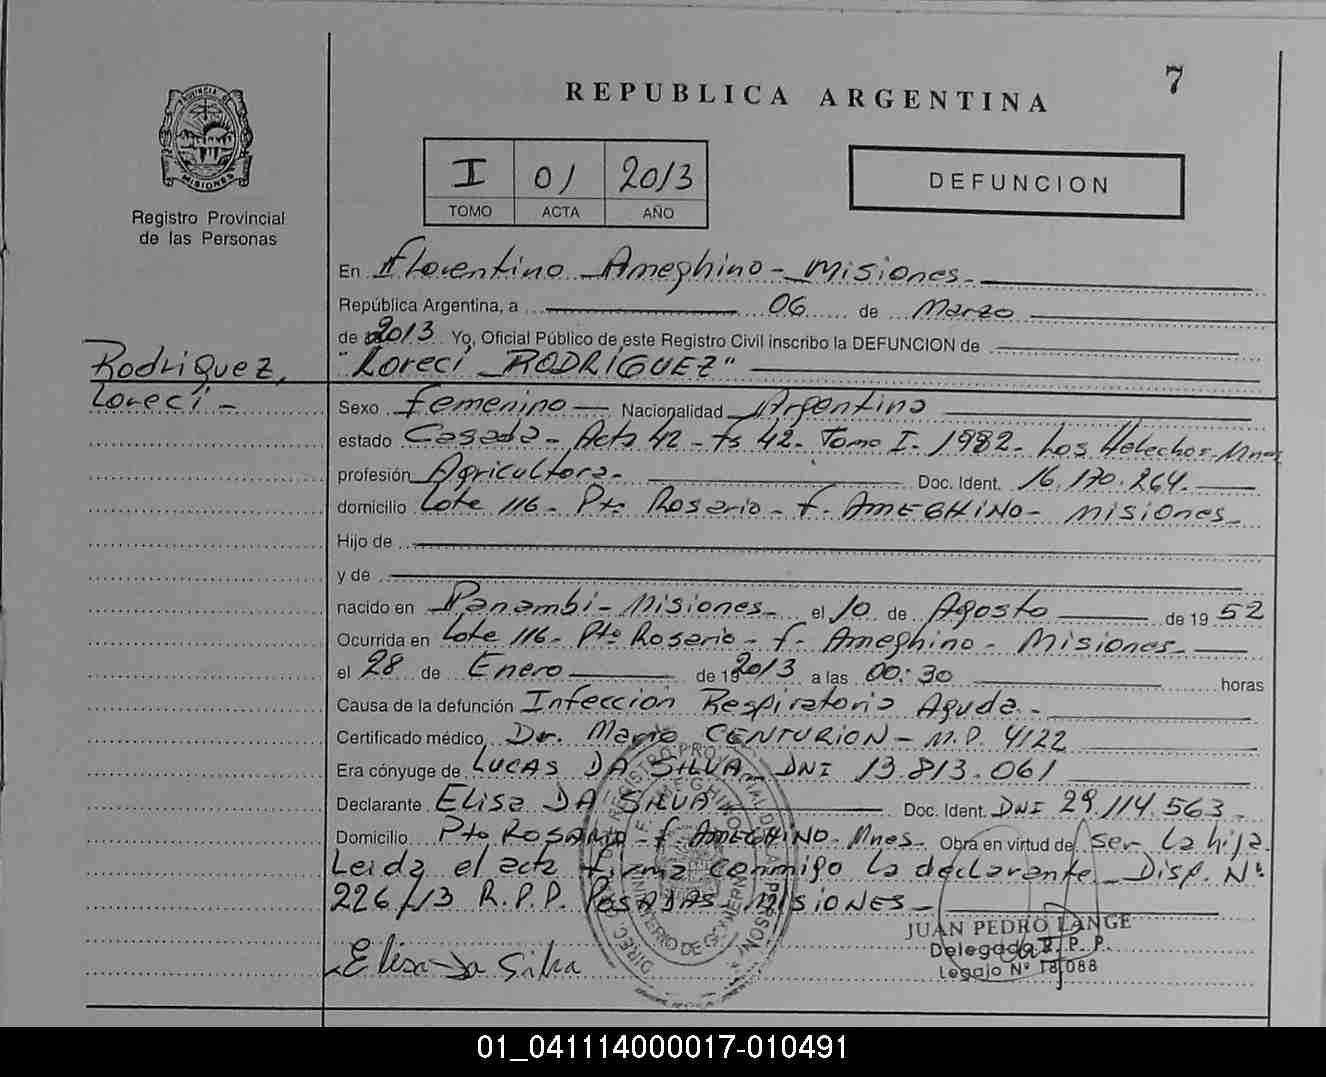 7
REPUBLICA ARGENTINA
PROVINCIA DE
MISIONES
Registro Provincial
de las Personas
I 01 2013
TOMO ACTA AÑO
DEFUNCION
En Florentino Ameghino - Misiones -
República Argentina, a 06 de Marzo
de 2013 Yo, Oficial Público de este Registro Civil inscribo la DEFUNCION de
Rodriguez,
"Loreci RODRIGUEZ"
Loreci -
Sexo femenino Nacionalidad Argentina
estado Casada - Acta 42 - fs 42 - Tomo I - 1982 - Los Helechos - Mnes
profesión Agricultora - Doc. Ident. 16.170.264. -
domicilio Lote 116 - Pto Rosario - f. AMEGHINO - Misiones -
Hijo de
y de
nacido en Panambi - Misiones - el 10 de Agosto de 19 52
Ocurrida en Lote 116 - Pto Rosario - f. Ameghino - Misiones -
el 28 de Enero de 19 2013 a las 00:30 horas
Causa de la defunción Infeccion Respiratoria Aguda -
Certificado médico Dr. Mario CENTURION - M.P. 4122
Era cónyuge de LUCAS DA SILVA - DNI 13.813.061
Declarante Elisa DA SILVA Doc. Ident. DNI 29.114.563 -
Domicilio Pto ROSARIO - f. AMEGHINO - Mnes - Obra en virtud de ser la hija.
Leida el acta firma conmigo la declarante - Disp. Nº
226/13 R.P.P. POSADAS - MISIONES -
JUAN PEDRO LANGE
Delegado R. P. P.
Legajo Nº 18,088
Elisa Da Silva
01_041114000017-010491